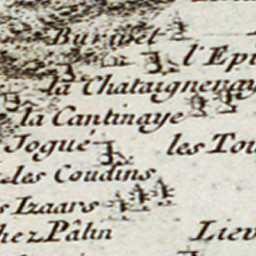 Burinet
l'Epi
la Chataigneray
la Cantinaye
Jogué
les Tou
les Coudins
s Izaars
hez Pâlin
Liev